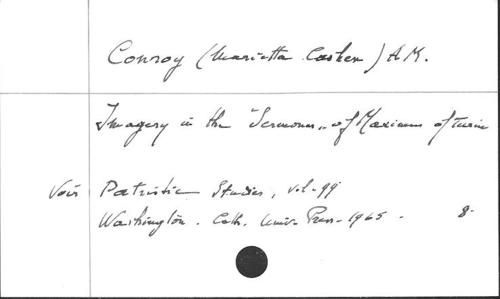 Conroy (Marietta Cashen) A.M.
Imagery in the "Sermones" of Maximus of Turin
Voir Patristic Studies, vol. 99
Washington. Cath. Univ. Press. 1965. 8-